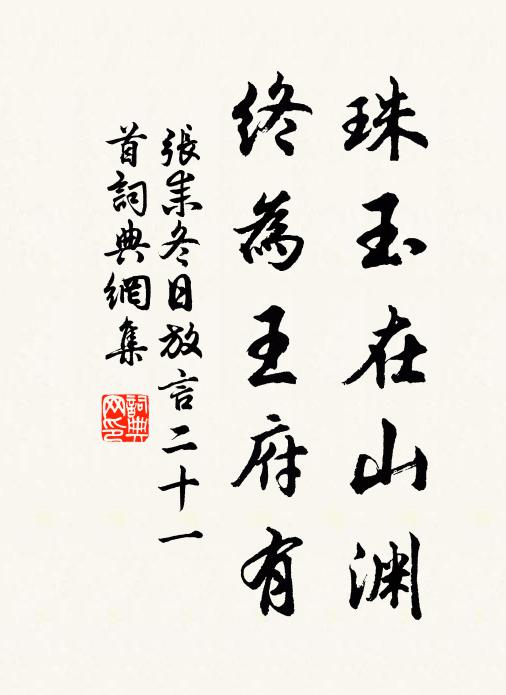 珠玉在山渊
终為王府有
張耒冬日放言二十一
首詞典網集
詞典
网印